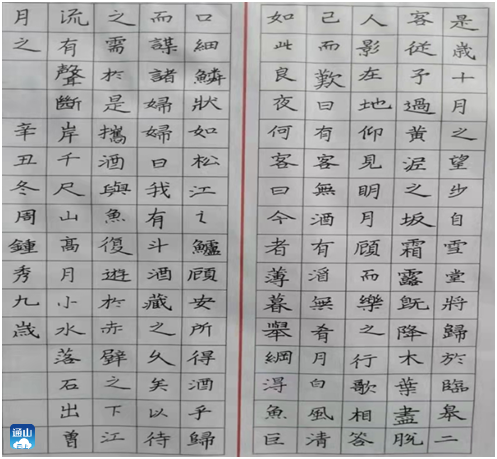 是歲十月之望步自雪堂將歸於臨皋二
客從予過黃泥之坂霜露既降木葉盡脫
人影在地仰見明月顧而樂之行歌相答
己而歎曰有客無酒有酒無肴月白風清
如此良夜何客曰今者薄暮舉網得魚巨
口細鱗狀如松江之鱸顧安所得酒乎歸
而謀諸婦婦曰我有斗酒藏之久矣以待
之需於是攜酒與魚復遊於赤壁之下江
流有聲斷岸千尺山高月小水落石出曾
月之 辛丑冬周鍾秀九歲
通山